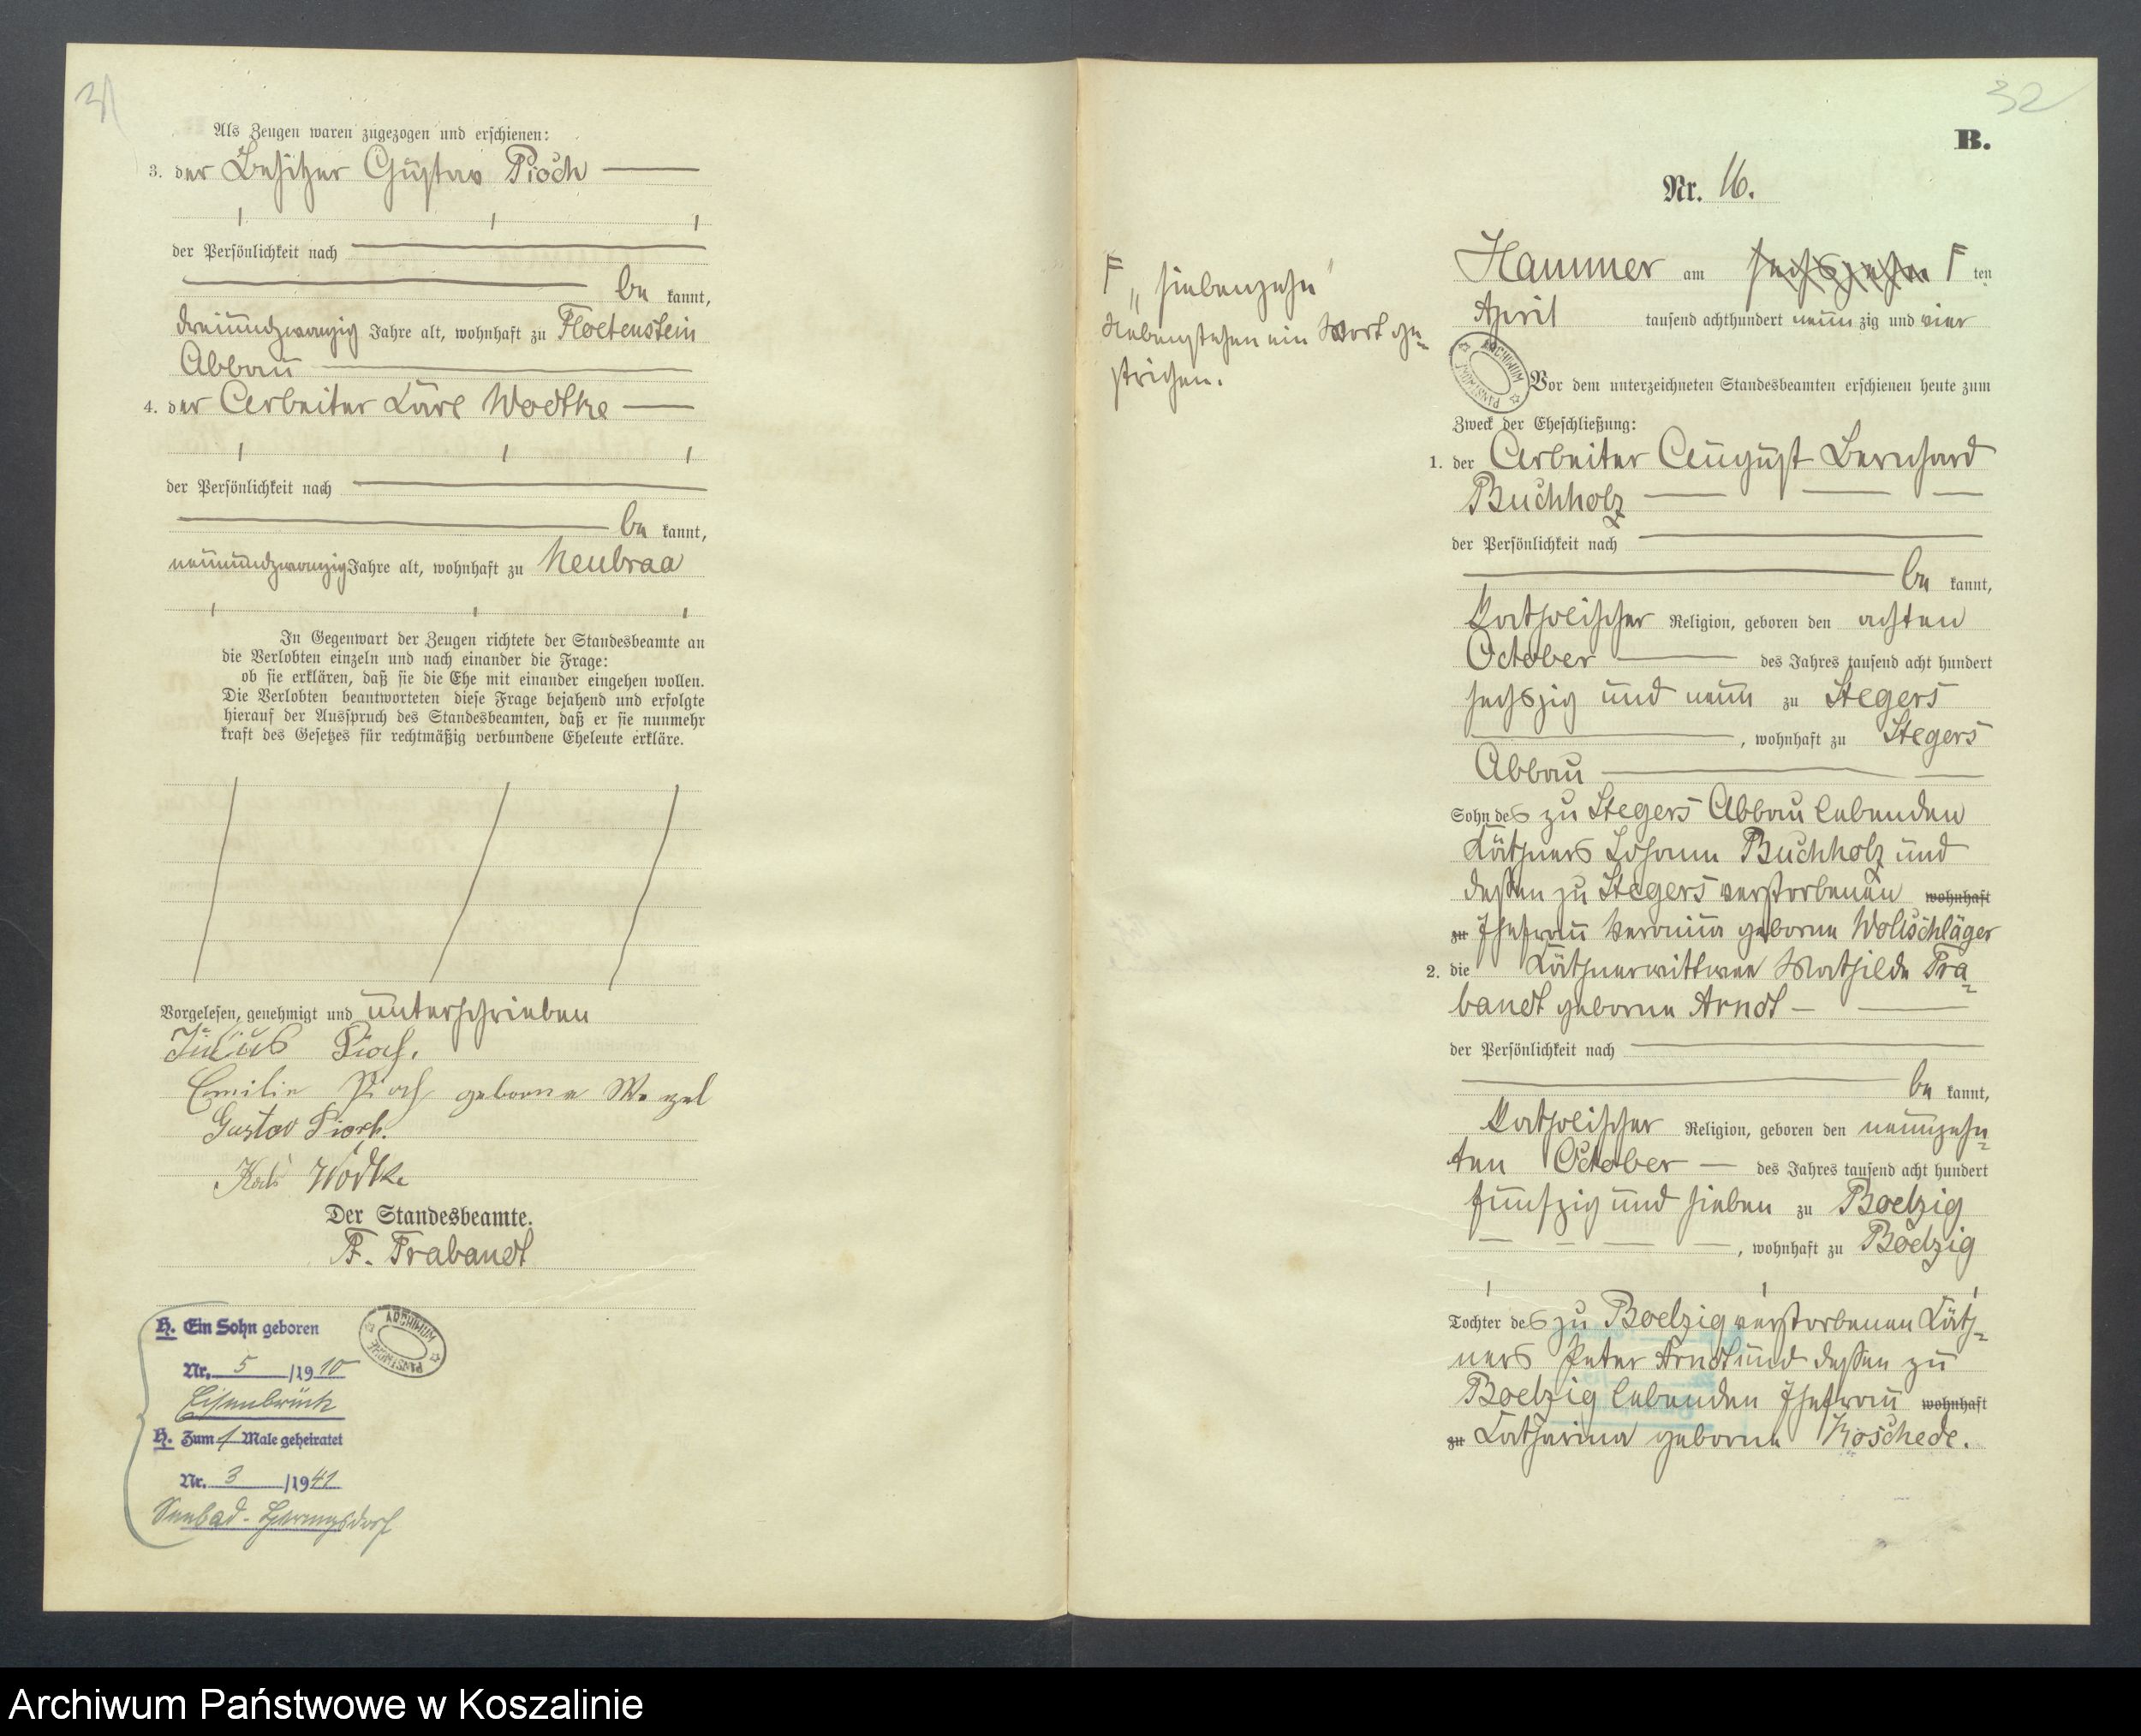 31
Als Zeugen waren zugezogen und erschienen:
3. der Besitzer Gustav Pioch
der Persönlichkeit nach
be kannt,
dreiundzwanzig Jahre alt, wohnhaft zu Floetenstein
Abbau
4. der Arbeiter Karl Wodtke
der Persönlichkeit nach
be kannt,
neunundzwanzig Jahre alt, wohnhaft zu Neubraa
In Gegenwart der Zeugen richtete der Standesbeamte an
die Verlobten einzeln und nach einander die Frage:
ob sie erklären, daß sie die Ehe mit einander eingehen wollen.
Die Verlobten beantworteten diese Frage bejahend und erfolgte
hierauf der Ausspruch des Standesbeamten, daß er sie nunmehr
kraft des Gesetzes für rechtmäßig verbundene Eheleute erkläre.
Vorgelesen, genehmigt und unterschrieben
Julius Pioch.
Emilie Pioch geborene
Gustav Pioch.
Karl Wodtke
Der Standesbeamte.
F. Trabandt
H. Ein Sohn geboren
Nr. 5 /1910
Eisenbrück
H. Zum 1 Male geheiratet
Nr. 3 /1941
Seebad-
ARCHIWUM PAŃSTWOWE
32
B.
Nr. 16.
Hammer am sechszehn F ten
April tausend achthundert neun zig und vier
F „siebenzehn"
Nebenstehen ein Wort ge-
strichen.
ARCHIWUM PAŃSTWOWE
Vor dem unterzeichneten Standesbeamten erschienen heute zum
Zweck der Eheschließung:
1. der Arbeiter August Bernhard
Buchholz
der Persönlichkeit nach
be kannt,
katholischer Religion, geboren den achten
October des Jahres tausend acht hundert
sechszig und neun zu Stegers
, wohnhaft zu Stegers
Abbau
Sohn des zu Stegers Abbau lebenden
Käthners Johann Buchholz und
dessen zu Stegers verstorbenen wohnhaft
zu Ehefrau Veronica geborne Wollschläger
2. die Käthnerwittwee Mathilde Tra-
bandt geborne Arndt
der Persönlichkeit nach
be kannt,
katholischer Religion, geboren den neunzehn-
ten October des Jahres tausend acht hundert
fünfzig und sieben zu Boelzig
, wohnhaft zu Boelzig
Tochter des zu Boelzig verstorbenen Käth-
ners Peter Arndt und dessen zu
Boelzig lebenden Ehefrau wohnhaft
zu Catharina geborne Koschede.
Archiwum Państwowe w Koszalinie